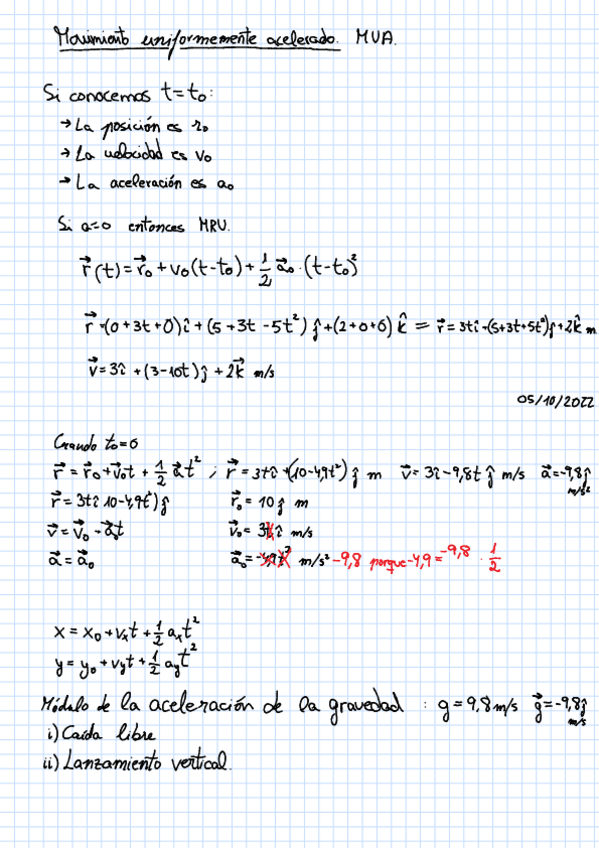 Movimiento uniformemente acelerado. MUA.
Si conocemos t=t₀:
→ La posición es r₀
→ La velocidad es v₀
→ La aceleración es a₀
Si a=0 entonces MRU.
r⃗(t)=r⃗₀+v₀(t-t₀)+1/2 a⃗₀·(t-t₀)²
r⃗ =(0+3t+0)î+(5+3t-5t²)ĵ+(2+0+0)k̂ = r⃗=3tî+(5+3t+5t²)ĵ+2k⃗ m
v⃗=3î+(3-10t)ĵ+2k⃗ m/s
05/10/2022
Cuando t₀=0
r⃗=r⃗₀+v⃗₀t+1/2 a⃗t² ; r⃗=3tî+(10-4,9t²)ĵ m v⃗=3î-9,8t ĵ m/s a⃗=-9,8ĵ m/s²
r⃗=3tî 10-4,9t²)ĵ r⃗₀=10ĵ m
v⃗=v⃗₀-a⃗₀t v⃗₀=3tî m/s
a⃗=a⃗₀ a⃗₀=-4,9t² m/s² -9,8 porque -4,9=-9,8·1/2
x=x₀+vₓt+1/2 aₓt²
y=y₀+vyt+1/2 ayt²
Módulo de la aceleración de la gravedad : g=9,8m/s g⃗=-9,8ĵ m/s
i) Caída libre
ii) Lanzamiento vertical.